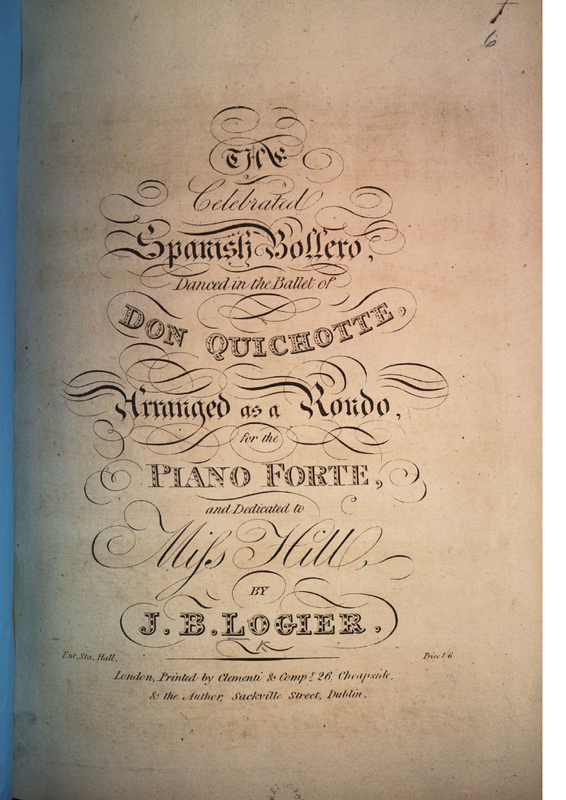 6
THE
Celebrated
Spanish Bollero,
Danced in the Ballet of
DON QUICHOTTE,
Arranged as a Rondo,
for the
PIANO FORTE,
and Dedicated to
Miſs Hill,
BY
J. B. LOGIER,
Ent. Sta. Hall.
Price 1/6
London, Printed by Clementi & Compy. 26, Cheapside,
& the Author, Sackville Street, Dublin.